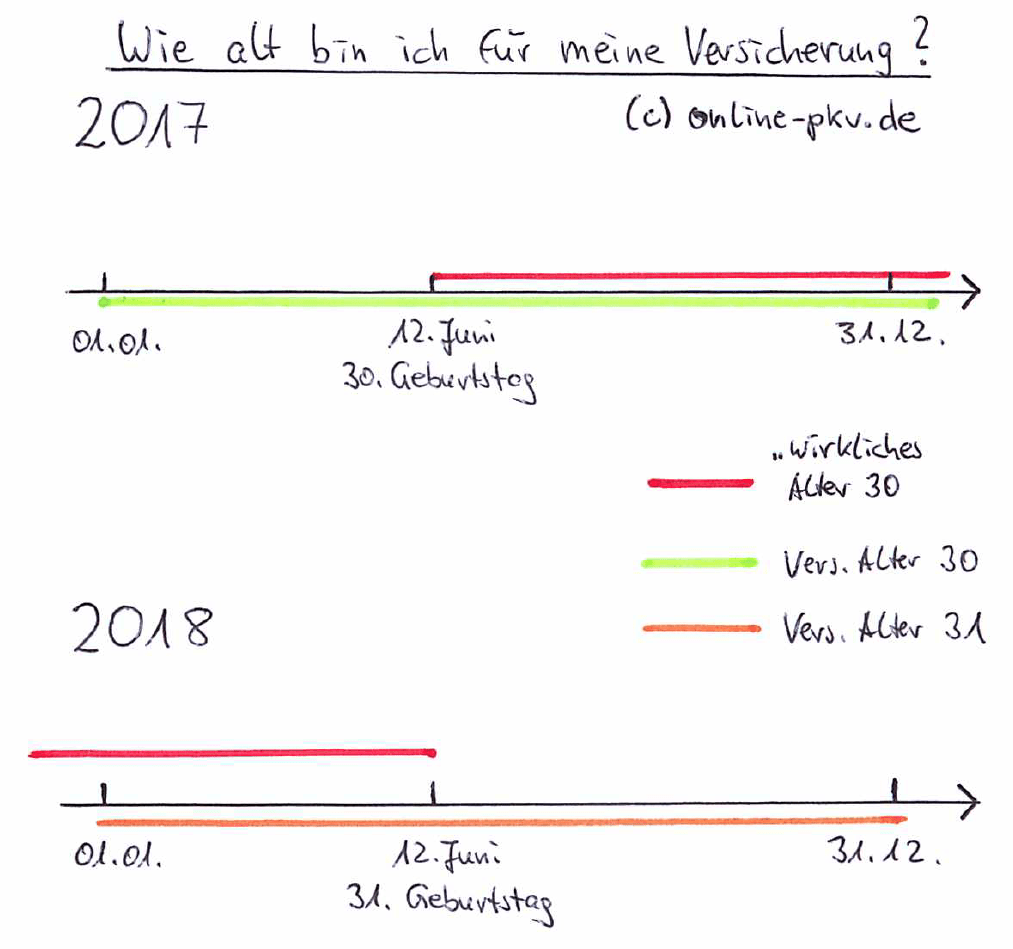 Wie alt bin ich für meine Versicherung?
2017
(c) online-pkv.de
01.01.
12. Juni
31.12.
30. Geburtstag
„Wirkliches
Alter 30
Vers. Alter 30
2018
Vers. Alter 31
01.01.
12. Juni
31.12.
31. Geburtstag